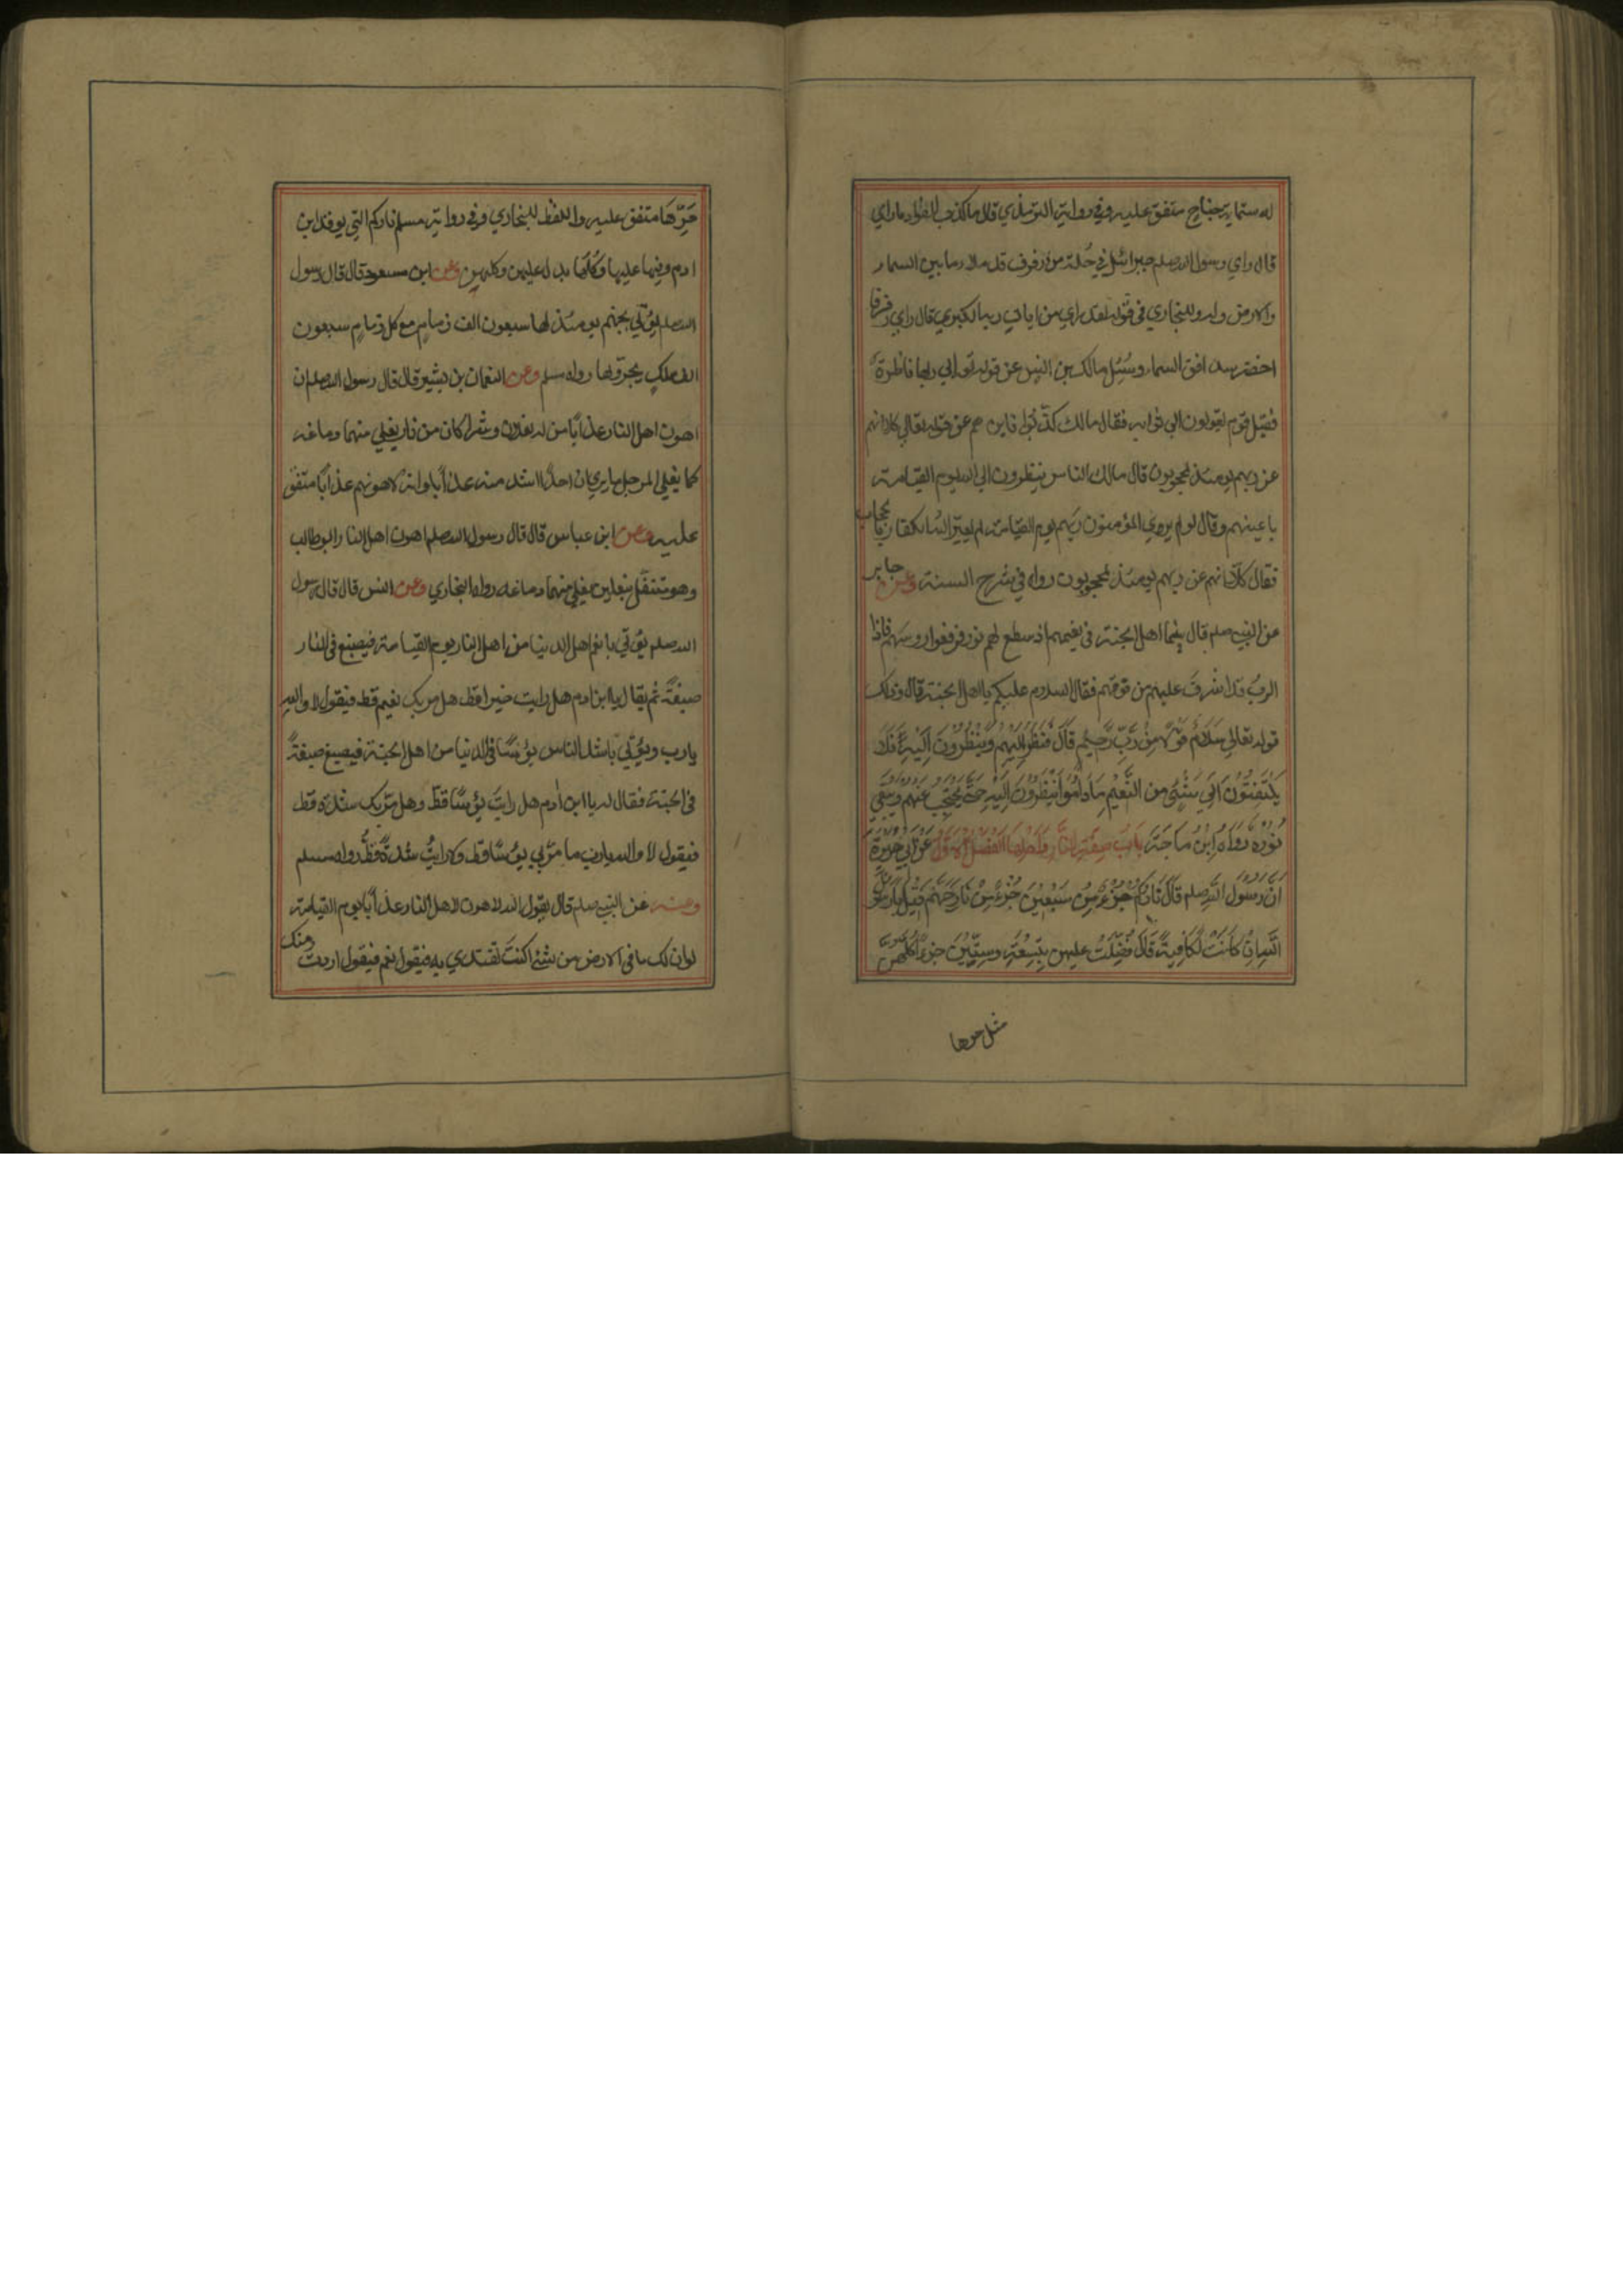 له ستماية جناح متفق عليه وفي رواية الترمذي قال ما كذب الفواد ما راي
قال راي رسول الله صلعم جبرائيل في حُلة من رفرف قد ملأ ما بين السماء
والارض وله وللبخاري في قوله لقد راي من ايات ربه الكبري قال راي رفرفا
اخضر سد افق السماء وسُئِل مالك بن انس عن قوله تع الي ربها ناظرة
فقيل قوم يقولون الي ثوابه فقال مالك كذبوا فاين هم عن قوله تعالي كلا انهم
عن ربهم يومئذ لمحجوبون قال مالك الناس ينظرون الي الله يوم القيامة
باعينهم وقال لو لم يري المؤمنون ربهم يوم القيامة لم يعير الله الكفار بالحجاب
فقال كلا انهم عن ربهم يومئذ لمحجوبون رواه في شرح السنة وعن جابر
عن النبي صلعم قال بينما اهل الجنة في نعيمهم اذ سطع لهم نور فرفعوا روسهم فاذا
الربُ قد اشرفَ عليهم من فوقهم فقال السلام عليكم يا اهل الجنة قال وذلك
قوله تعالي سَلَامٌ قَوْلًا مِنْ رَبٍّ رَحِيمٍ قَالَ فَنَظَرَ اِلَيْهِمْ وَيَنْظُرُونَ اِلَيْهِ فَلَا
يَلْتَفِتُوْنَ اِلَي شَيْئٍ مِن النَّعِيْمِ مَا دَامُوْا يَنْظُرُوْنَ اِلَيْهِ حَتّٰي يَحْتَجِبَ عَنْهُمْ وَيَبْقَي
نُوْرُهُ رَوَاهُ اِبْنُ مَاجَةَ بَابُ صِفَةِ النَّارِ وَاَهْلِهَا الْفَصْلُ الْاَوَّلُ عَنْ اَبِي هُرَيْرَةَ
اَنَّ رَسُوْلَ اللّٰهِ صلعم قَالَ نَارُكُمْ جُزْءٌ مِنْ سَبْعِيْنَ جُزْءً مِنْ نَارِ جَهَنَّمَ قِيْلَ يَا رَسُوْلَ
اللّٰهِ اِنْ كَانَتْ لَكَافِيَةً قَالَ فُضِّلَتْ عليهن بِتِسْعَةٍ وسِتِّيْنَ جزءًا كُلُّهُنَّ
مثل حرها
حَرِّهَا متفق عليه واللفظ للبخاري وفي رواية مسلم ناركم التي يوقد ابن
ادم وفيها عليها وكُلّها بدل عليهن وكلهن وعن ابن مسعود قال قال رسول
الله صلعم يؤتي بجهنم يومئذ لها سبعون الف زمامٍ مع كل زمامٍ سبعون
الف ملكٍ يجرونها رواه مسلم وعن النعمان بن بشير قال قال رسول الله صلعم ان
اهون اهل النار عذابًا من له نعلان وشراكان من نار يغلي منهما دماغه
كما يغلي المرجل ما يري ان احدًا اشد منه عذابًا وانه لاهونهم عذابًا متفق
عليه وعن ابن عباس قال قال رسول الله صلعم اهون اهل النار ابو طالب
وهو متنعل بنعلين يغلي منهما دماغه رواه البخاري وعن انس قال قال رسول
الله صلعم يؤتي بانعم اهل الدنيا من اهل النار يوم القيامة فيصبغ في النار
صبغةً ثم يقال يا ابن ادم هل رايت خيرا قط هل مر بك نعيم قط فيقول لا والله
يارب ويؤتي باشد الناس بؤسًا في الدنيا من اهل الجنة فيصبغ صبغةً
في الجنة فقال له يا ابن أدم هل رايتَ بؤسًا قط وهل مرّ بك شدة قط
فيقول لا والله يارب ما مرّ بي بؤسًا قط ولا رايتُ شدةً قطُّ رواه مسلم
وعنه عن النبي صلعم قال يقول الله لاهون لاهل النار عذابًا يوم القيامة
لوان لك ما في الارض من شئ اكنتَ تفتدي به فيقول نعم فيقول اردت منك